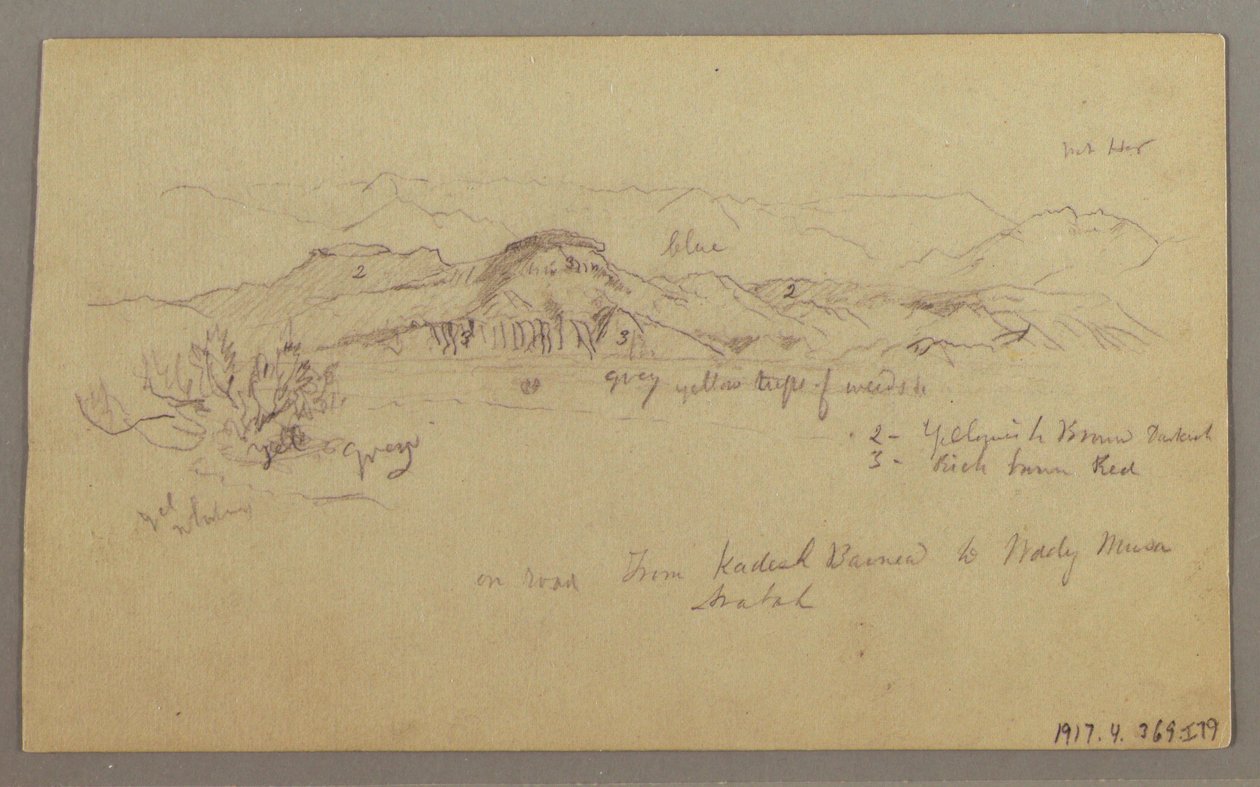 Mt Hor
blue
2
3
2
3
3
grey yellow tufts of weeds
yel grey
2 - Yellowish Brown
3 - Rich brown Red
yel
on road From Kadesh Barnea to Wady Musa
Arabah
1917.4.369-I79